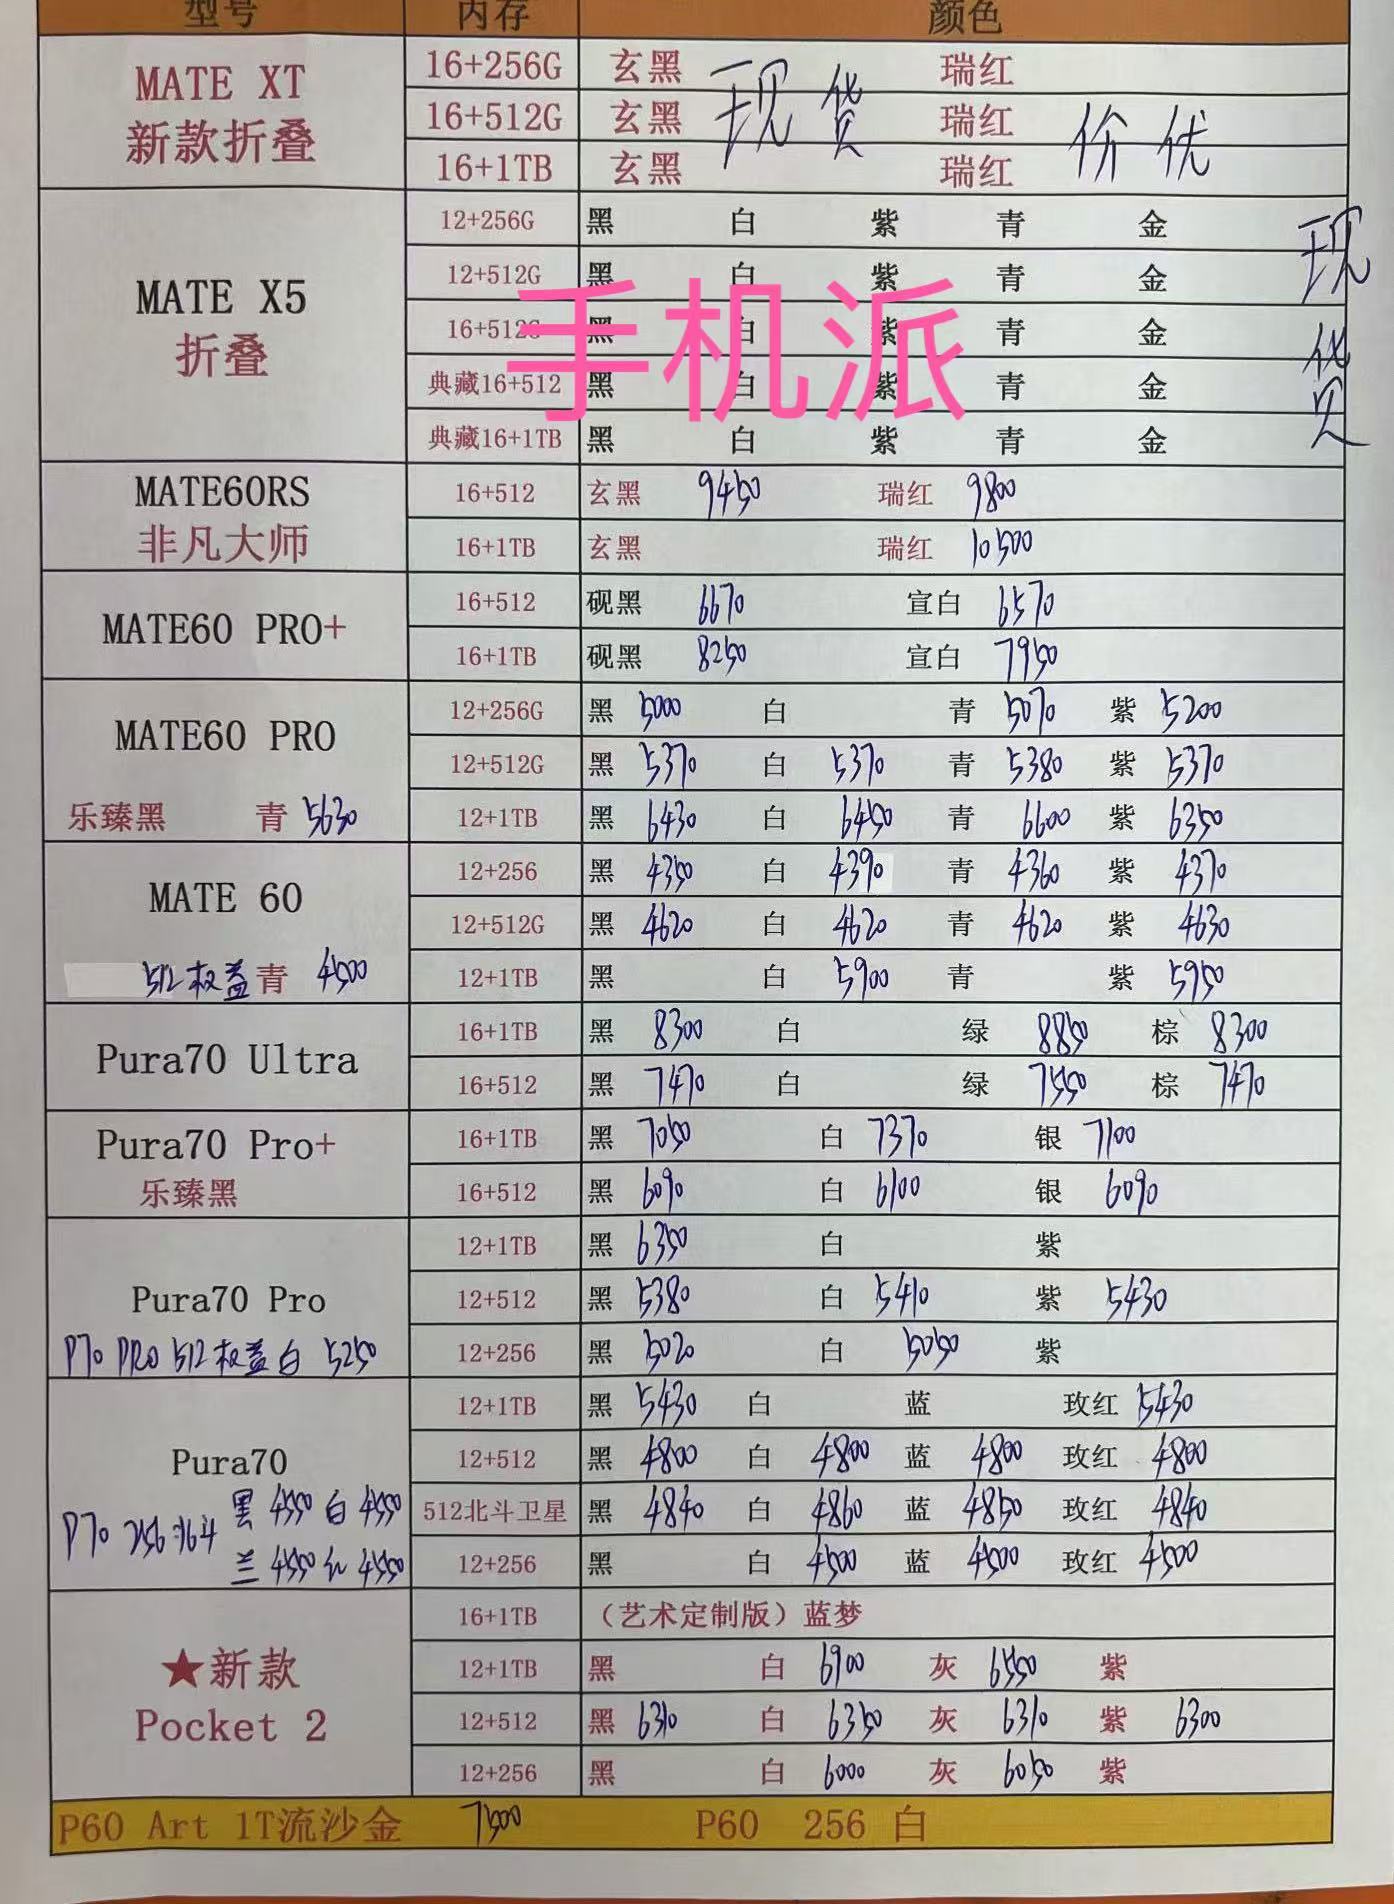 型号 内存 颜色
MATE XT 16+256G 玄黑 现货 瑞红
新款折叠 16+512G 玄黑 瑞红 价优
16+1TB 玄黑 瑞红
12+256G 黑 白 紫 青 金 现货
MATE X5 12+512G 黑 白 紫 青 金
折叠 16+512G 黑 白 紫 青 金
手机派
典藏16+512 黑 白 紫 青 金
典藏16+1TB 黑 白 紫 青 金
MATE60RS 16+512 玄黑 9450 瑞红 9800
非凡大师 16+1TB 玄黑 瑞红 10500
MATE60 PRO+ 16+512 砚黑 6670 宣白 6570
16+1TB 砚黑 8250 宣白 7950
MATE60 PRO 12+256G 黑 5000 白 青 5070 紫 5200
12+512G 黑 5370 白 5370 青 5380 紫 5370
乐臻黑 青 5630 12+1TB 黑 6430 白 6450 青 6600 紫 6350
MATE 60 12+256 黑 4350 白 4390 青 4360 紫 4370
12+512G 黑 4620 白 4620 青 4620 紫 4630
512权益青 4500 12+1TB 黑 白 5900 青 紫 5950
Pura70 Ultra 16+1TB 黑 8300 白 绿 8850 棕 8300
16+512 黑 7470 白 绿 7550 棕 7470
Pura70 Pro+ 16+1TB 黑 7050 白 7370 银 7100
乐臻黑 16+512 黑 6090 白 6100 银 6090
12+1TB 黑 6350 白 紫
Pura70 Pro 12+512 黑 5380 白 5410 紫 5430
P70 PRO 512权益白 5250 12+256 黑 5020 白 5050 紫
12+1TB 黑 5430 白 蓝 玫红 5430
Pura70 12+512 黑 4800 白 4800 蓝 4800 玫红 4800
P70 256 黑 4550 白 4550 512北斗卫星 黑 4840 白 4860 蓝 4850 玫红 4840
兰 4550 红 4550 12+256 黑 白 4500 蓝 4500 玫红 4500
16+1TB （艺术定制版）蓝梦
★新款 12+1TB 黑 白 6900 灰 6550 紫
Pocket 2 12+512 黑 6310 白 6350 灰 6310 紫 6300
12+256 黑 白 6000 灰 6050 紫
P60 Art 1T流沙金 7500 P60 256 白